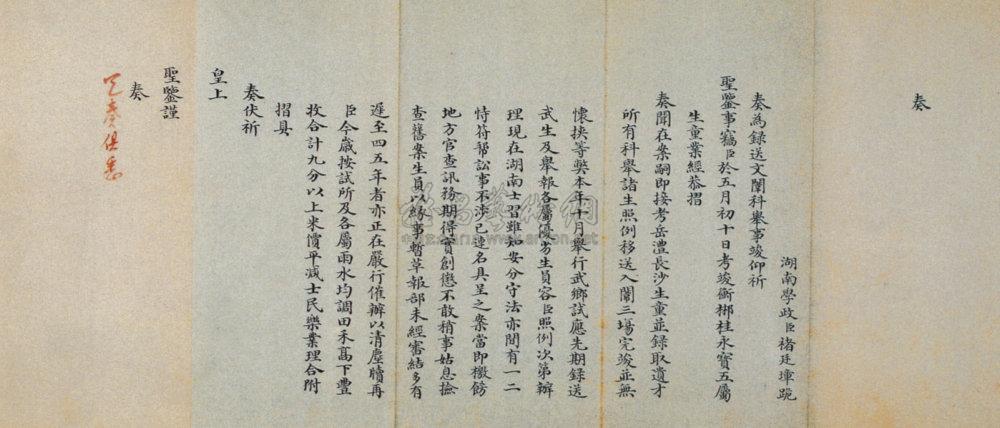 奏
湖南學政臣褚廷璋跪
奏為錄送文闈科舉事竣仰祈
聖鑒事竊臣於五月初十日考竣衡郴桂永寶五屬
生童業經恭摺
奏聞在案嗣即接考岳澧長沙生童並錄取遺才
所有科舉諸生照例移送入闈三場完竣並無
懷挾等獘本年十月舉行武鄉試應先期錄送
武生及舉報各屬優劣生員容臣照例次第辦
理現在湖南士習雖知安分守法亦間有一二
恃符幫訟事不涉己連名具呈之案當即檄飭
地方官查訊務期得實創懲不敢稍事姑息撿
查舊案生員以緣事暫革報部未經審結多有
遲至四五年者亦正在嚴行催辦以清塵牘再
臣今歲按試所及各屬雨水均調田禾高下豐
收合計九分以上米價平減士民樂業理合附
摺具
奏伏祈
皇上
聖鑒謹
奏